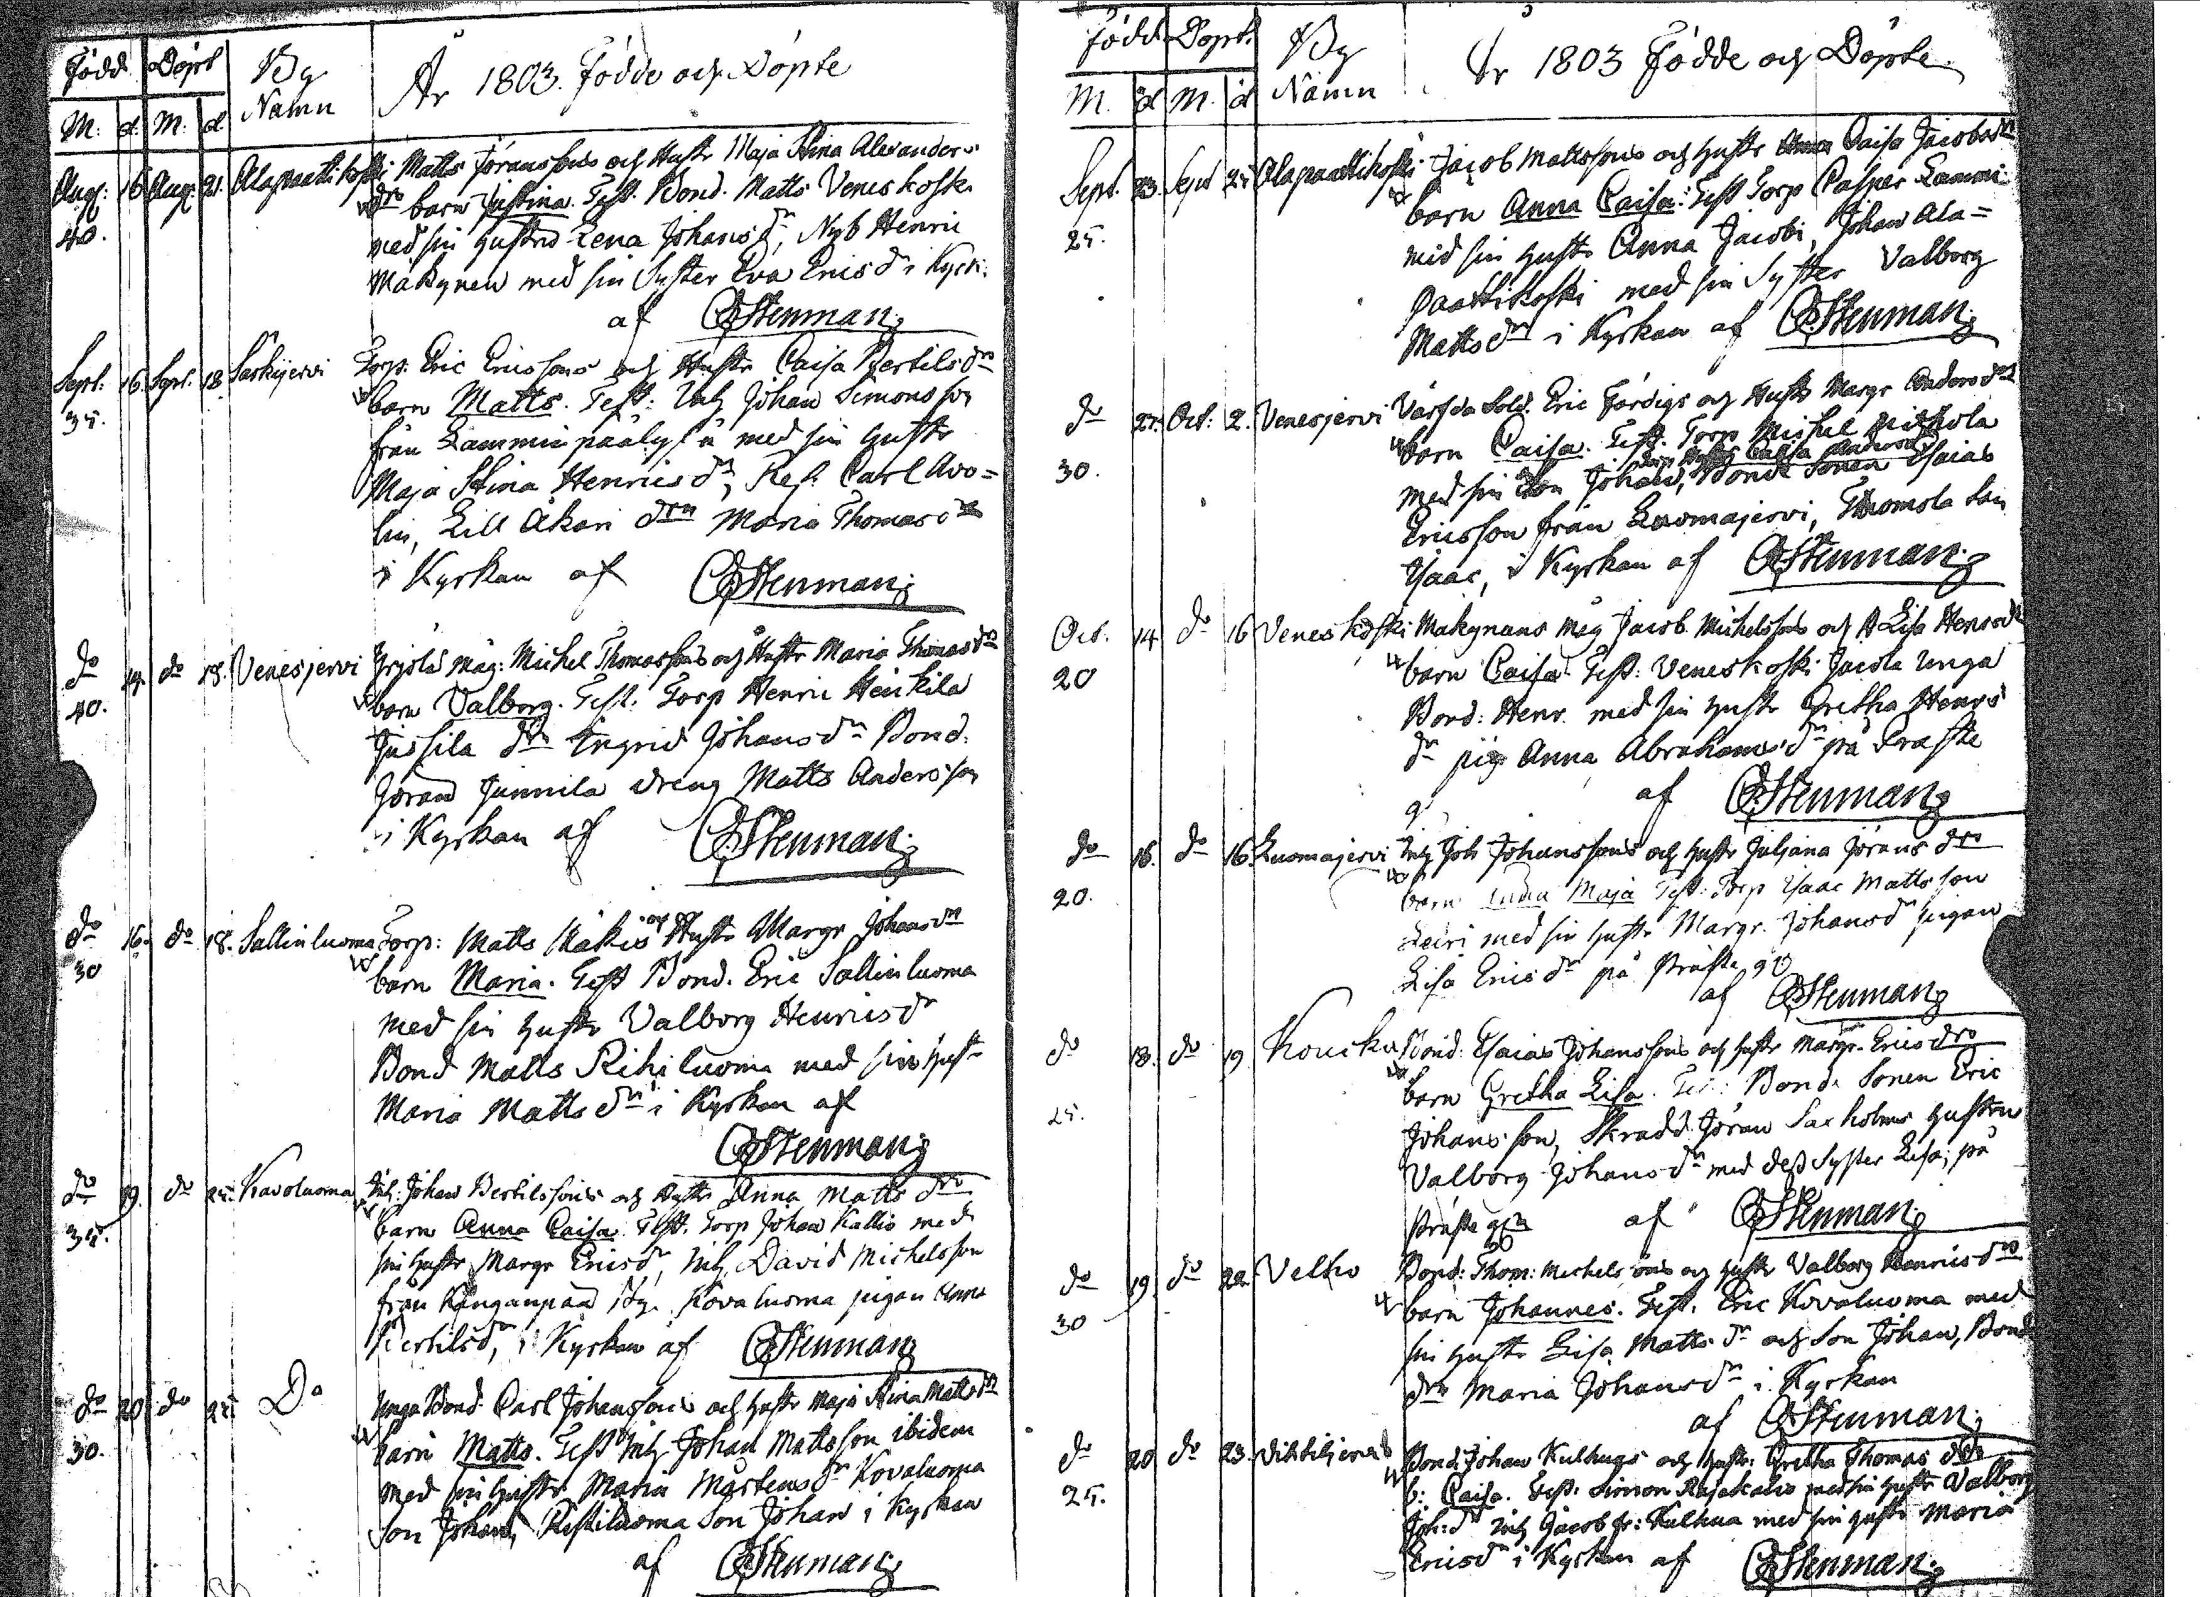 Född Döpt By Namn År 1803. Födde och Döpte
M: d. M: d.
Aug: 16 Aug: 21. Alapaattikoski Matts Jöranssons och Hustr Maja Stina Alexanders
40. dr barn Justina. Test. Bond. Matts Veneskoski
med sin hustru Lena Johansdr, Nyb Henric
Mäkynen med sin Syster Eva Ericsdr i Kyrk.
af CGStenman
Sept: 16. Sept. 18 Säskijervi Torp. Eric Ericssons och Hustr Caisa Bertilsdr
35. barn Matts. Test: Inh Johan Simonsson
från Lamminpää med sin hustr
Maja Stina Henricsdr, Carl Avo=
lin, Lill Äkäri drn Maria Thomasdr
i Kyrkan af CGStenman
do do 18. Venesjervi Yrjölä måg: Michel Thomassons och Hustr Maria Thomasdr
40. barn Valborg. Test. Torp Henric Heikilä
Jussila drn Ingrid Johansdr Bond.
Jöran Junnila dreng Matts Andersson
i Kyrkan af CGStenman
do 16. do 18. Sallinluoma Torp: Matts Mäkis och Hustr Margr Johansdr
30 barn Maria. Test Bond. Eric Sallinluoma
med sin hustr Valborg Henricsdr
Bond Matts Rihiluoma med sin hust
Maria Mattsdr i Kyrkan af
CGStenman
do 19. do 25. Kovoluoma Inh: Johan Bertilssons och Hustr Anna Mattsdr
35. barn Anna Caisa. Test. Torp Johan Kallio med
sin hustr Margr Ericsdr, Inh David Michelsson
från Kanganpää Kovaluoma pigan Anna
Bertilsdr, i Kyrkan af CGStenman
do 20. do 25. Do Unga Bond. Carl Johanssons och hustr Maja Stina Mattsdr
30. barn Matts. Test Inh Johan Mattsson ibidem
med sin hustr Maria Mårtensdr Kovaluoma
son Johan, Ristiluoma son Johan i Kyrkan
af CGStenman
Född Döpt. By Namn År 1803 Födde och Döpte
M. d M. d
Sept. 23. Sept 25 Alapaattikoski Jacob Mattssons och hustr Caisa Jacobsdr
25. barn Anna Caisa: Test Torp Casper Lammi
med sin hustr Anna Jacobi, Johan Ala=
paattikoski med sin Syster Valborg
Mattsdr i Kyrkan af CGStenman
do 27. Oct: 2. Venesjervi Värfda Sold. Eric Färdigs och Hustr Margr Andersdr
30. barn Caisa. Test. Torp Michel
hustr Caisa Andersdr
med sin son Johan, Bonde Sonen Esaias
Ericsson från Luomajervi, Thomola Son
Isaac, i Kyrkan af CGStenman
Oct. 14. do 16 Veneskoski Mäkynens måg Jacob Michelssons och H Lisa Henrsdr
20 barn Caisa. Test: Veneskoski Jacola Unga
Bond: Henr. med sin hustr Gretha Henrs
dr pig Anna Abrahamsdr på Präste
g. af CGStenman
do 16. do 16. Luomajervi Inh Joh Johanssons och hustr Juliana Jöransdr
20. barn Maja Test: Torp Isaac Mattsson
med sin hustr Margr. Johansdr pigan
Lisa Ericsdr på Präste gd
af CGStenman
do 18. do 19 Koucku Bond: Esaias Johanssons och hustr Margr. Ericsdr
25. barn Gretha Lisa. Test: Bond. Sonen Eric
Johansson, Skradd. Jöran Saxholms hustru
Valborg Johansdr med dess Syster Lisa, på
Präste gdn af CGStenman
do 19. do 22. Velho Bond: Thom: Michelssons och hustr Valborg Henricsdr
30 barn Johannes. Test. Eric Kovaluoma med
sin hustr Lisa Mattsdr och Son Johan, Bond
drn Maria Johansdr i Kyrkan
af CGStenman
do 20 do 23. Bond: Johan Kulhuas och hustr: Gretha Thomas dr
25. b: Caisa. Test. Simon Rajakalio med sin hustr Valborg
Joh:dr Inh Jacob Kulhua med sin hustr Maria
Ericsdr i Kyrkan af CGStenman